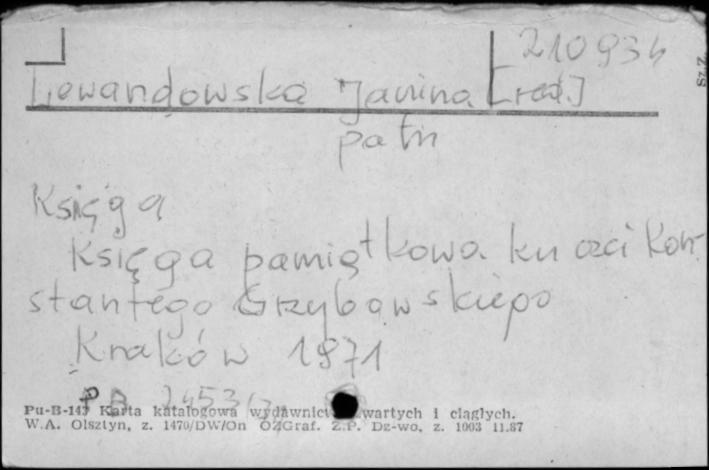 210934
Lewandowska Janina [red.]
patrz
Księga
Księga pamiątkowa ku czci Kon-
stantego Grzybowskiego
Kraków 1971
Pu-B-147 Karta katalogowa wydawnictw zwartych i ciągłych.
W.A. Olsztyn, z. 1470/DW/On OZGraf. Z.P. Dz-wo, z. 1003 11.87